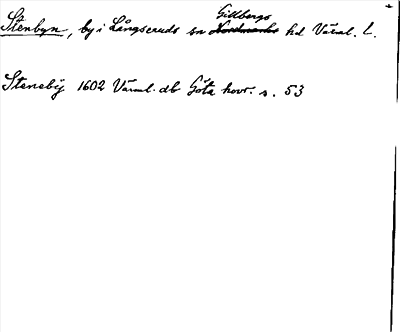 Stenbyn, by i Långseruds sn Gillbergs hd Värml. l.
Steneby 1602 Värml. db Göta hovr. s. 53